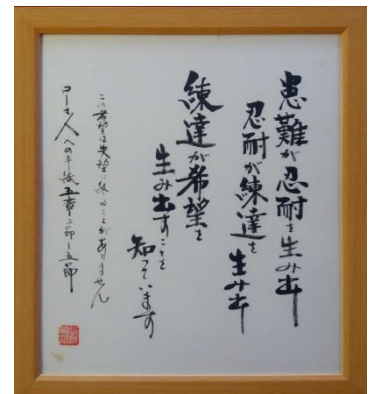 患難が忍耐を生み出
忍耐が練達を生み出
練達が希望を
生み出すことを
知っています
この希望は失望に終ることがありません
ローマ人への手紙五章三節ー五節